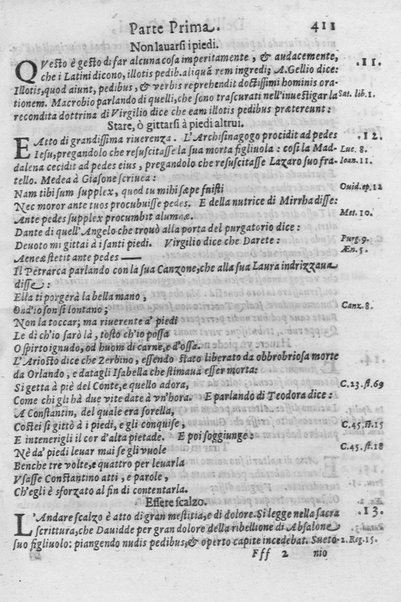 Parte Prima. 411
Non lauarsi i piedi.
QVesto è gesto di far alcuna cosa imperitamente, & audacemente, .11.
che i Latini dicono, illotis pedib. aliquã rem ingredi; A.Gellio dice:
Illotis, quod aiunt, pedibus, & verbis reprehendit doctissimi hominis ora-
tionem. Macrobio parlando di quelli, che sono trascurati nell'inuestigar la Sat. lib.1.
recondita dottrina di Virgilio dice che eam illotis pedibus præterunt:
Stare, ò gittarsi à piedi altrui.
E Atto di grandissima riuerenza. L'Archisinagogo procidit ad pedes .12.
Iesu, pregandolo che resuscitasse la sua morta figliuola: così la Mad- Luc. 8.
dalena cecidit ad pedes eius, pregandolo che resuscitasse Lazaro suo fra- Ioan.11.
tello. Medea à Giasone scriuea:
Nam tibi sum supplex, quod tu mihi sæpe fuisti Ouid.ep.12
Nec moror ante tuos procubuisse pedes. E della nutrice di Mirrha disse:
Ante pedes supplex procumbit alumnæ. Met. 10.
Dante di quell'Angelo che trouò alla porta del purgatorio dice:
Deuoto mi gittai à i santi piedi. Virgilio dice che Darete: Purg.9.
Aeneæ stetit ante pedes —— Æn. 5.
Il Petrarca parlando con la sua Canzone, che alla sua Laura indrizzaua
disse:
Ella ti porgerà la bella mano,
Ond'io son sì lontano; Canz.8.
Non la toccar; ma riuerente a' piedi
Le dì ch'io sarò là, tosto ch'io possa
O spirto ignudo, od huom di carne, e d'ossa.
L'Ariosto dice che Zerbino, essendo stato liberato da obbrobriosa morte
da Orlando, e datagli Isabella che stimaua esser morta:
Si getta à piè del Conte, e quello adora, C.23.st.69
Come chi gli hà due vite date à vn'hora. E parlando di Teodora dice:
A Constantin, del quale era sorella,
Costei si gittò à i piedi, e gli conquise, C.45.st.15
E intenerigli il cor d'alta pietade. E poi soggiunge:
Nè da' piedi leuar mai se gli vuole C.45.st.18
Benche tre volte, e quattro per leuarla
Vsasse Constantino atti, e parole,
Ch'egli è sforzato al fin di contentarla.
Essere scalzo.
L'Andare scalzo è atto di gran mestitia, e di dolore. Si legge nella sacra .13.
scrittura, che Dauidde per gran dolore della ribellione di Absalone
suo figliuolo: piangendo nudis pedibus, & operto capite incedebat. Sueto- 2.Reg.15.
Fff 2 nio